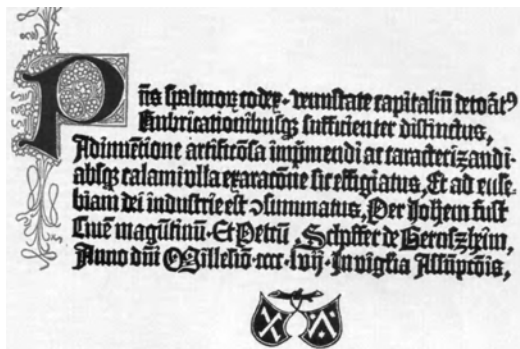 Pñs spalmorꝝ codex · venustate capitaliū decorat⁹
Rubricationibusqꝫ sufficienter distinctus,
Adinuentione artificōsa imp̄mendi ac caracterizandi ·
absqꝫ calami vlla exaracōne sic effigiatus, Et ad euse-
biam dei industrie est ↄsummatus, Per Joh̄em fust
Ciuē magūtinū · Et Petrū Schoffer de Gernszheim,
Anno dn̄i Millesīo · cccc · lvij · In vigīlia Assūpcōis,